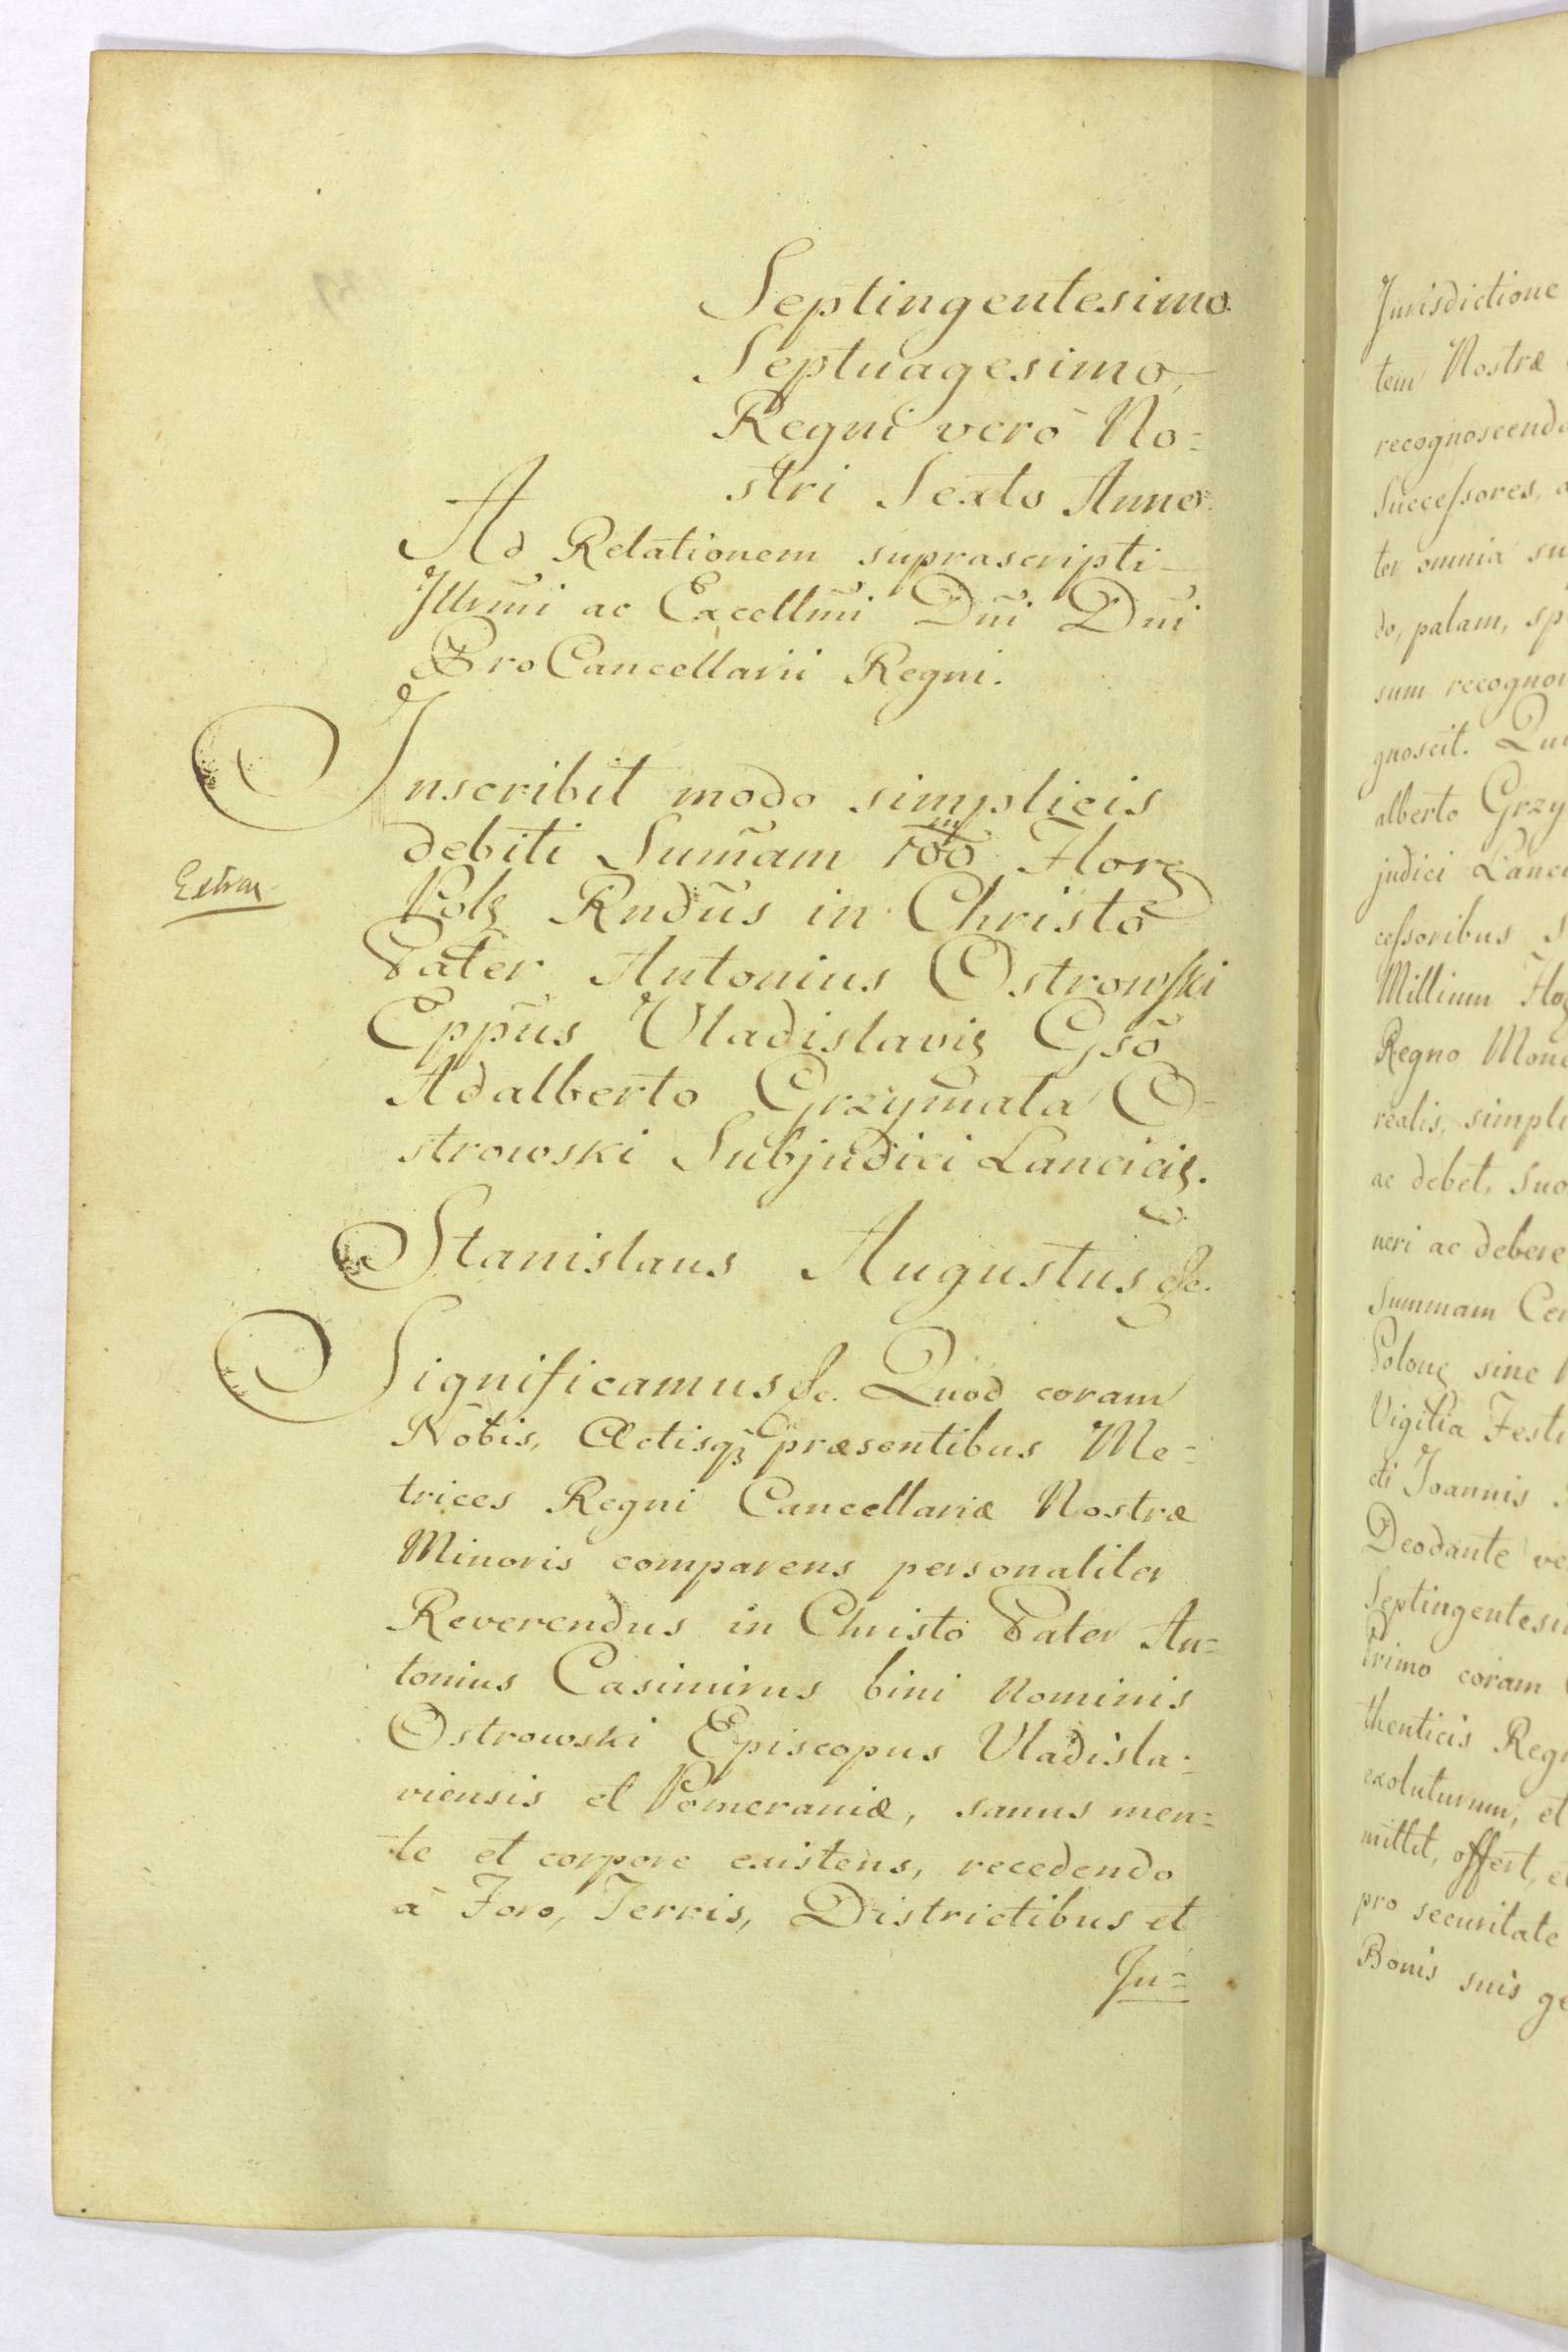 Septingentesimo
Septuagesimo,
Regni verò No=
stri Sexto Anno.
Ad Relationem suprascripti
Illrm̄i ac Excellm̄i Dn̄i Dn̄i
ProCancellarii Regni.
Inscribit modo simplicis
debiti Sum̄am 100 Florꝫ
Polꝫ Rndūs in Christo
Pater Antonius Ostrowski
Epp̄us Vladislaviꝫ Gsō
Adalberto Grzymała O-
strowski Subjudici Lanciciꝫ.
Extrax
Stanislaus Augustus &c.
Significamus &c. Quod coram
Nobis, Actisqꝫ præsentibus Me=
trices Regni Cancellariæ Nostræ
Minoris comparens personaliter
Reverendus in Christo Pater An=
tonius Casimirus bini Nominis
Ostrowski Episcopus Vladisla=
viensis et Pomeraniæ, sanus men=
te et corpore existens, recedendo
à Foro, Terris, Districtibus et
Ju=
Jurisdictione
tem Nostræ
recognoscendo
Successores,
ter omnia su
do, palam, sp
sum recognov
gnoscit. Qu
alberto Grzy
judici Lanci
cessoribus S
Millium Flo
Regno Mone
realis, simpli
ac debet, suo
neri ac debere
Summam Cen
Polonꝫ sine
Vigilia Festi
cti Joannis
Deodante ve
Septingentesi
Primo coram
thenticis Reg
exoluturum, et
mittit, offert, e
pro securitate
Bonis suis ge